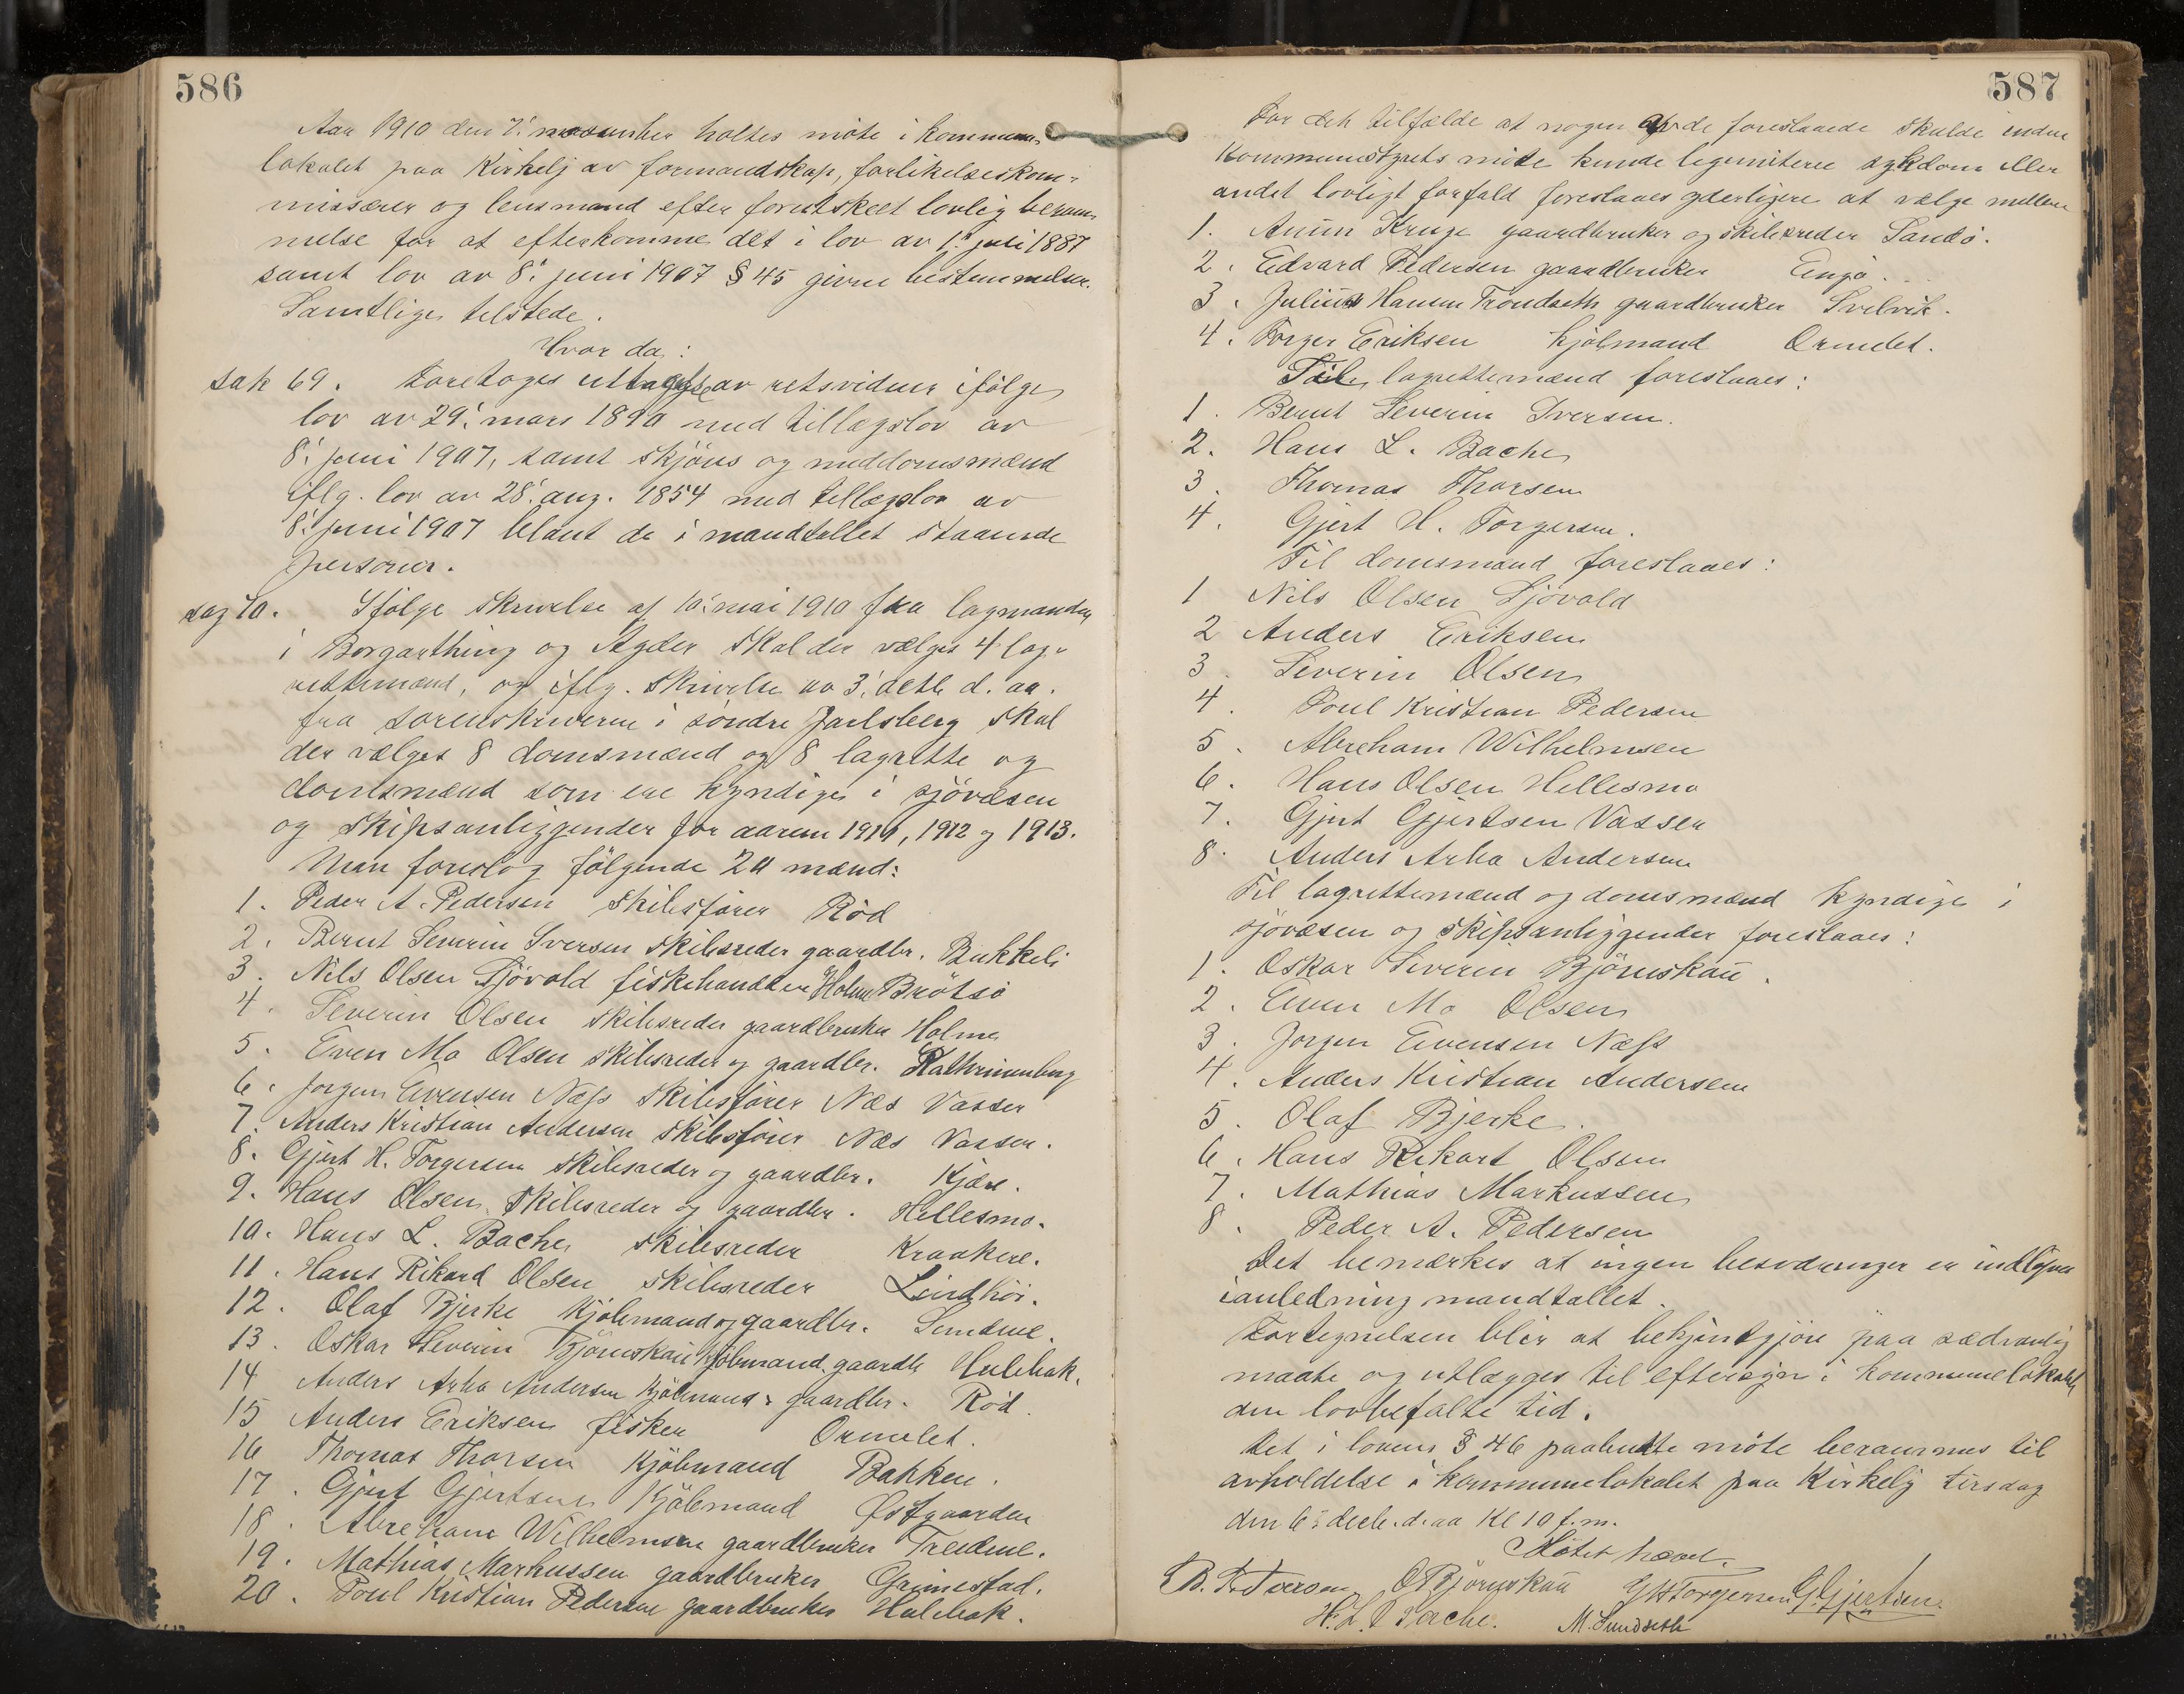 586
Aar 1910 den 7' november holtes möte i kommune-
lokalet paa Kirkelj av formandskap, forlikelseskom-
missærer og lensmand efter forutskeet lovlig beram-
melse for at efterkomme det i lov av 1' juli 1887
samt lov av 8' juni 1907 § 45 givne bestemmelser.
Samtlige tilstede.
Hvor da:
sak 69. Foretoges uttagelse av retsvidner ifölge
lov av 29' mars 1890 med tillægslov av
8' juni 1907, samt skjöns og meddomsmænd
iflg. lov av 28' aug. 1854 med tillægslov av
8' juni 1907 blant de i mandtallet staaende
personer.
sag 70. Ifölge skrivelse af 10' mai 1910 fra lagmanden
i Borgarthing og Agder skal der vælges 4 lag-
rettemænd, og iflg. skrivelse av 3' dette d. aa.
fra sorenskriveren i söndre Jarlsberg skal
der vælges 8 domsmænd og 8 lagrette og
domsmænd som ere kyndige i sjövæsen
og skipsanliggender for aarene 1911, 1912 og 1913.
Man foreslog fölgende 20 mænd:
1. Peder A. Pedersen skibsförer Röd
2. Bernt Severin Iversen skibsreder gaardbr. Bukkeli
3. Nils Olsen Sjövold fiskehandler Holme Brötsö
4. Severin Olsen skibsreder gaardbruker Holme
5. Even Mo Olsen skibsreder og gaardbr. Kathrinenberg
6. Jorgen Evensen Næss skibsförer Næs Vasser
7. Anders Kristian Andersen skibsförer Næs Vasser.
8. Gjert H. Torgersen skibsreder og gaardbr. Kjære.
9. Hans Olsen skibsreder og gaardbr. Hellesmo.
10. Hans L. Bache skibsreder Kraakere.
11. Hans Rikard Olsen skibsreder Lindhöi.
12. Olaf Bjerke kjöbmand og gaardbr. Sundene.
13. Oskar Severin Björnskau kjöbmand gaardb Hulebak.
14 Anders Arha Andersen kjöbmand & gaardbr. Röd.
15 Anders Eriksen fisker Ormelet.
16 Thomas Thorsen kjöbmand Bakken.
17. Gjert Gjertsen kjöbmand Østgaarden
18. Abreham Wilhelmsen gaardbruker Treidene.
19. Mathias Markussen gaardbruker Grimestad.
20. Poul Kristian Pedersen gaardbruker Hulebak.
587
For det tilfælde at nogen av de foreslaaede skulde inden
kommunestyrets möte kunde legemitere sykdom eller
andet lovligt forfald foreslaaes yderligere at vælge mellem
1. Anun Kruge gaardbruker og skibsreder Sandö.
2. Edvard Pedersen gaardbruker Engö.
3. Julius Hansen Trondseth gaardbruker Svelvik.
4. Torger Eriksen kjöbmand Ormelet.
Til lagrettemænd foreslaaes:
1. Bernt Severin Iversen.
2. Hans L. Bache
3. Thomas Thorsen
4. Gjert H. Torgersen.
Til domsmænd foreslaaes:
1 Nils Olsen Sjövold
2 Anders Eriksen
3. Severin Olsen
4. Poul Kristian Pedersen
5. Abreham Wilhelmsen
6. Hans Olsen Hellesmo
7. Gjert Gjertsen Vasser
8. Anders Arha Andersen
Til lagrettemænd og domsmænd kyndige i
sjövæsen og skipsanliggender foreslaaes:
1. Oskar Severin Björnskau.
2. Even Mo Olsen
3. Jorgen Evensen Næss
4. Anders Kristian Andersen
5. Olaf Bjerke.
6. Hans Rikart Olsen
7. Mathias Markussen
8. Peder A. Pedersen
Det bemærkes at ingen besværinger er indkommet
i anledning mandtallet.
Fortegnelsen blir at bekjentgjöre paa sædvanlig
maate og utlægges til eftersyn i kommunelokalet
den lovbefalte tid.
Det i lovens § 46 paabudte möte berammes til
avholdelse i kommunelokalet paa Kirkelj tirsdag
den 6' decb. d. aa Kl 10 f.m.
Mötet hævet.
B. S. Iversen O Björnskau G H Torgersen G. Gjertsen.
H. L. Bache. M. Sundseth